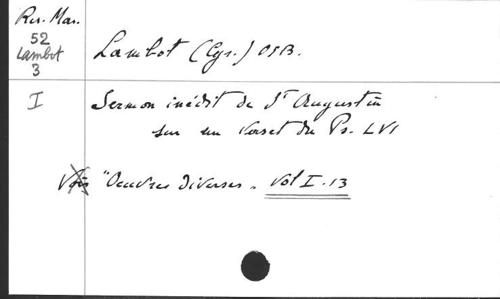 Rev. Mar.
52
Lambot
3
Lambot (Cyr.) OSB.
I
Sermon inédit de St Augustin
sur un verset du Ps. LVI
Voir "Oeuvres diverses" Vol I. 13